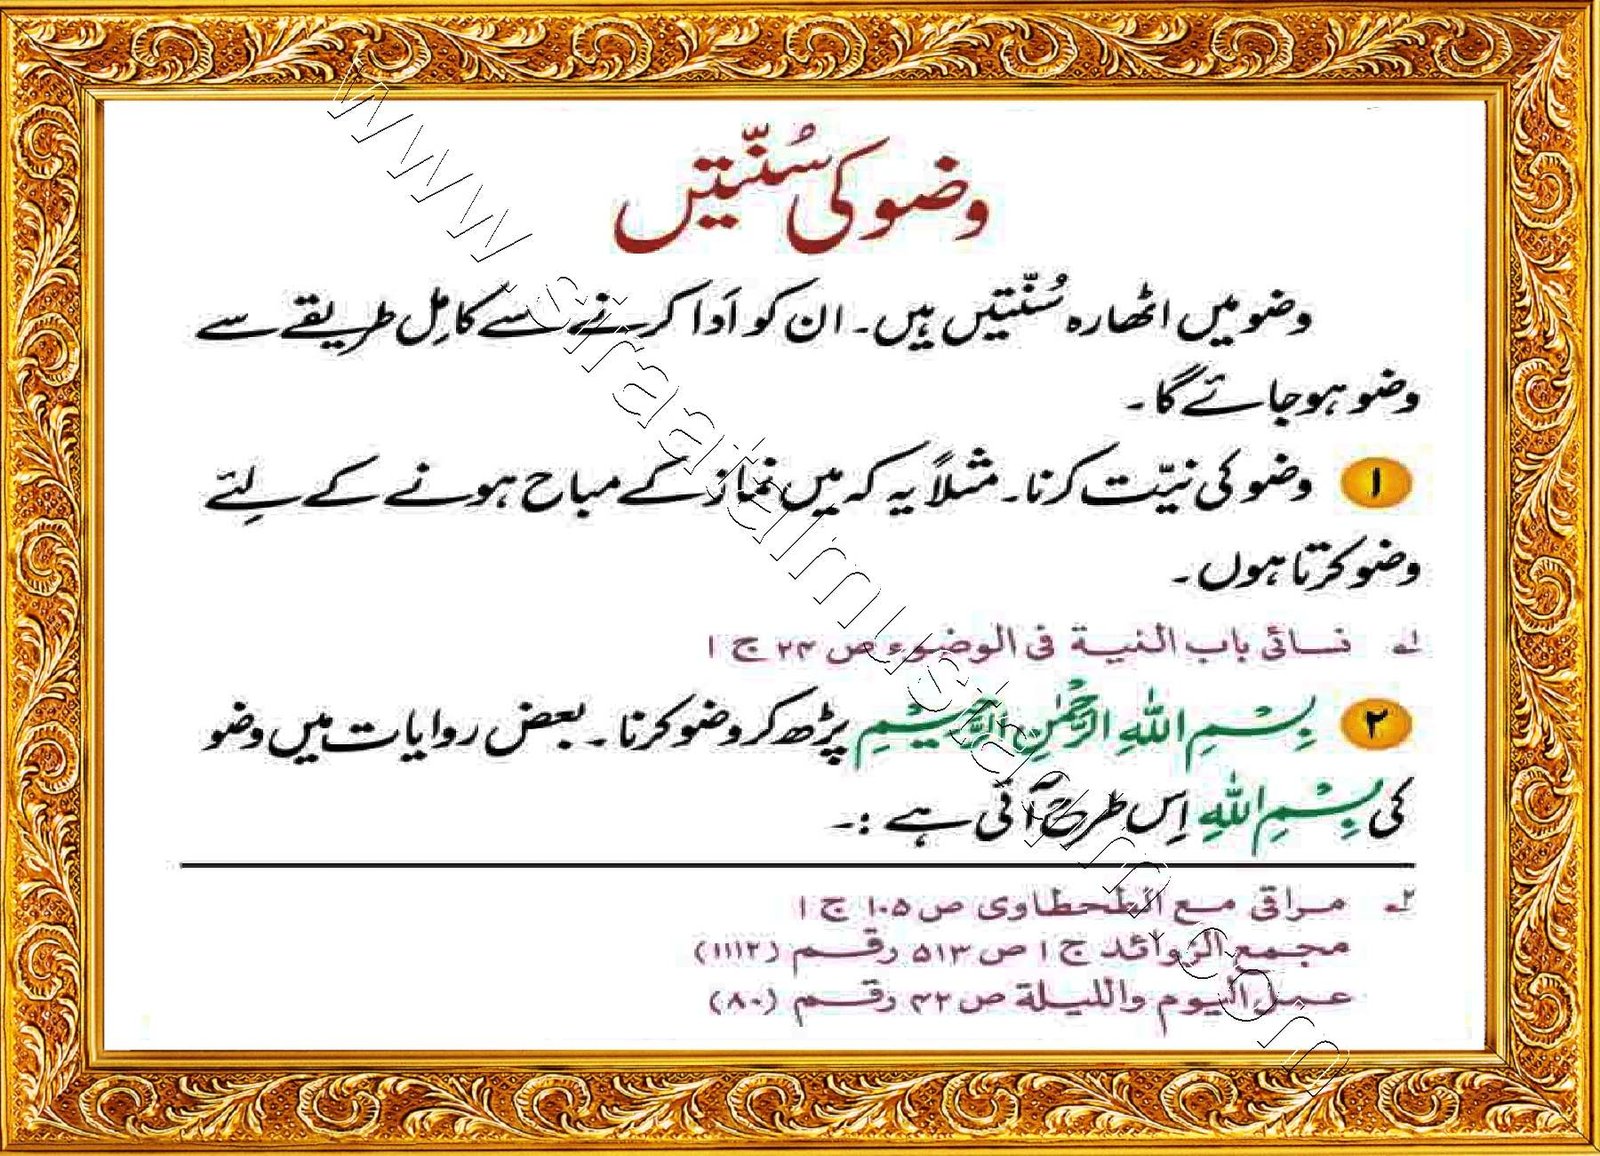 وضو کی سُنّتیں
وضو میں اٹھارہ سُنّتیں ہیں۔ ان کو اَدا کرنے سے کامِل طریقے سے
وضو ہو جائے گا۔
۱ وضو کی نیّت کرنا۔ مثلاً یہ کہ میں نماز کے مباح ہونے کے لِئے
وضو کرتا ہوں۔
۱ نسائی باب النیة فی الوضوء ص ۲۴ ج ۱
۲ بِسْمِ اللّٰهِ الرَّحْمٰنِ الرَّحِیْمِ پڑھ کر وضو کرنا۔ بعض روایات میں وضو
کی بِسْمِ اللّٰهِ اِس طرح آئی ہے :۔
۲ مراقی مع الطحطاوی ص ۱۰۵ ج ۱
مجمع الزوائد ج ۱ ص ۵۱۳ رقم (۱۱۱۲)
عمل الیوم واللیلة ص ۴۲ رقم (۸۰)
www.siraatalmustafim.com